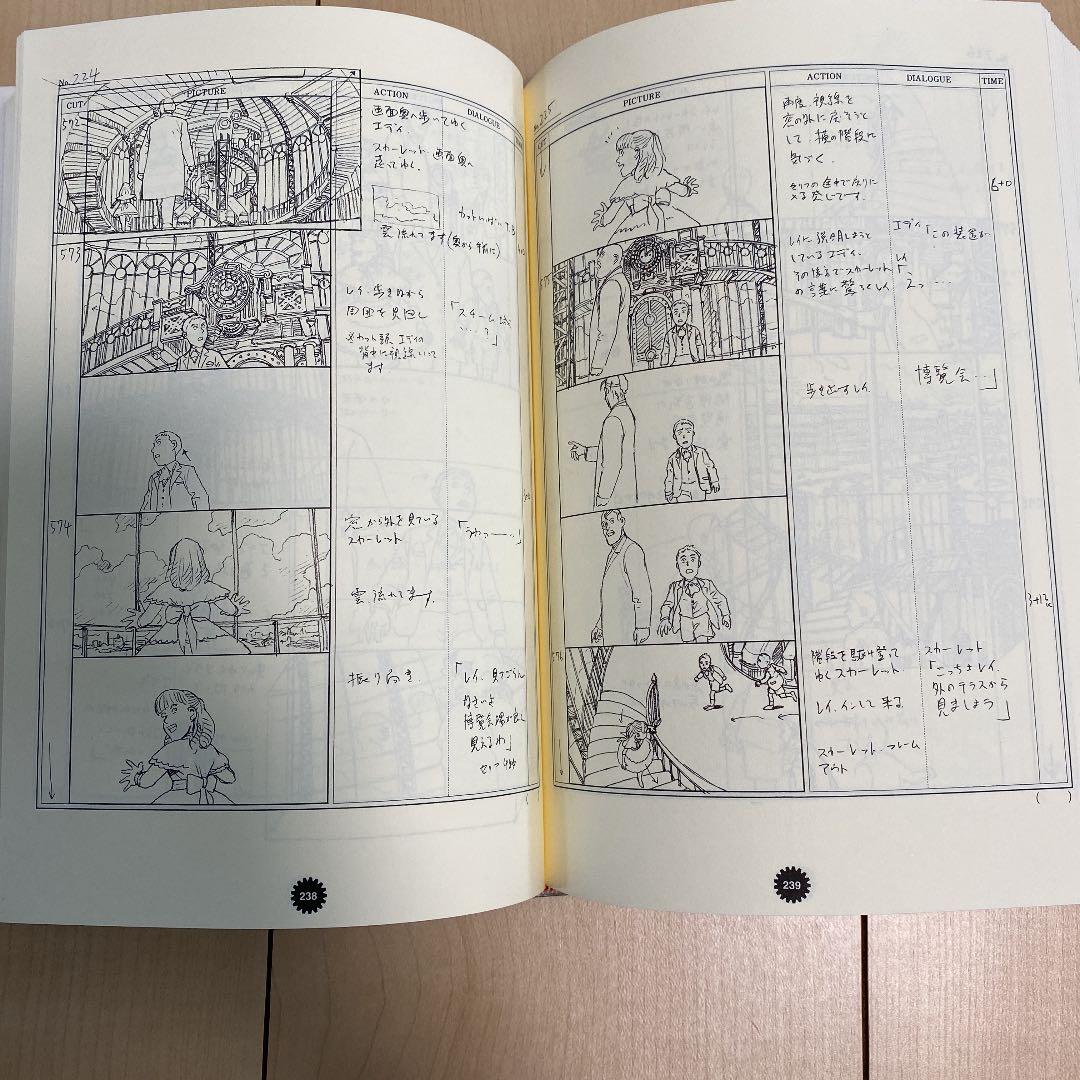 No. 224
CUT
PICTURE
ACTION
DIALOGUE
572
画面奥へ歩いてゆく
エディ
スカーレット、画面奥へ
走ってゆく。
雲流れてます(奥から手前に)
573
レイ、歩きながら
周囲を見回し
「スチーム城
…?」
※カット頭、エディの
背中に視線いって
ます
574
窓から外を見ている
スカーレット
「うわっ――…」
雲流れてます。
振り向き
「レイ、見てごらん
なさいよ
博覧会場が良く
見えるわ」
238
No. 225
CUT
PICTURE
ACTION
DIALOGUE
TIME
再度、視線を
窓の外に戻そうと
して、横の階段に
気づく。
セリフの途中で戻りに
入る感じです。
6+0
レイに説明しようと
しているエディ。
その後ろでスカーレット
の言葉に驚くレイ
エディ
「この装置が
レイ
「えっ…
博覧会…」
歩き出すレイ
576
階段を駆け登って
ゆくスカーレット
レイ、インして来る
スカーレット、フレーム
アウト
スカーレット
「こっちよレイ、
外のテラスから
見ましょう」
( )
239